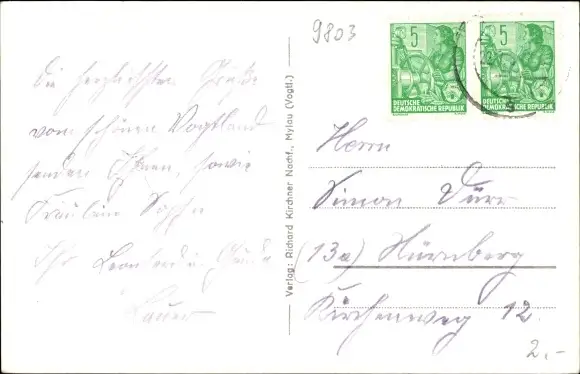 9803
Die herzlichsten Grüße
vom schönen Vogtland
senden Ihnen, sowie
Fräulein Sophie
Ihr
Lauer
Verlag: Richard Kirchner Nachf., Mylau (Vogtl.)
5
DEUTSCHE
DEMOKRATISCHE REPUBLIK
5
DEUTSCHE
DEMOKRATISCHE REPUBLIK
Herrn
Simon Dürr
(13a) Nürnberg
Kirchenweg 12.
2.-